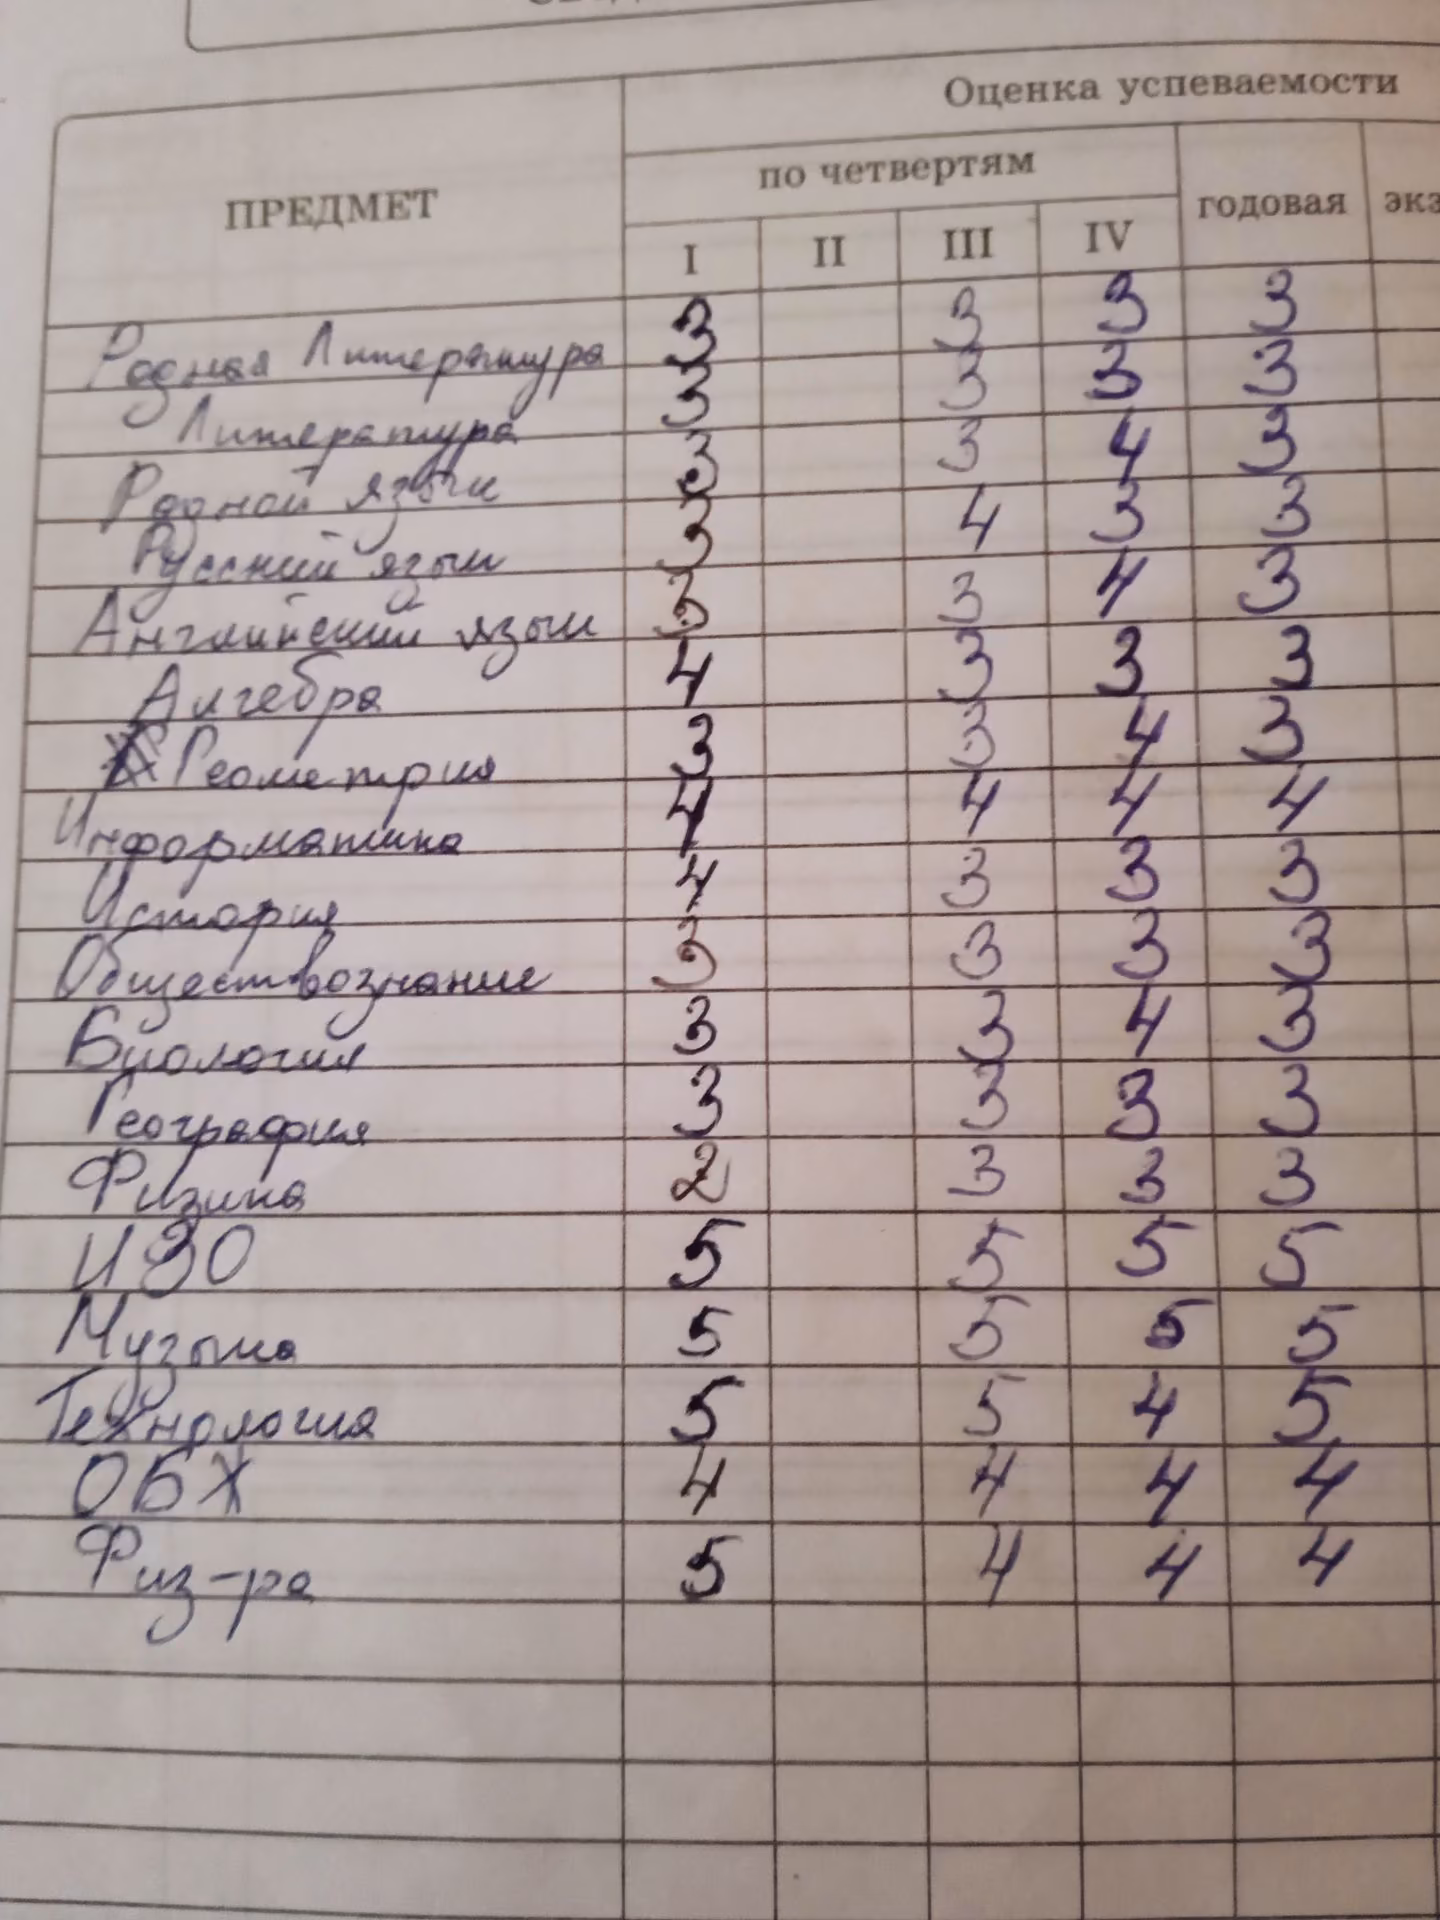 Оценка успеваемости
ПРЕДМЕТ
по четвертям
годовая
экз
I II III IV
Родная Литература 3 3 3 3
Литература 3 3 3 3
Родной язык 3 3 4 3
Русский язык 3 4 3 3
Английский язык 3 3 4 3
Алгебра 4 3 3 3
Геометрия 3 3 4 3
Информатика 4 4 4 4
История 4 3 3 3
Обществознание 3 3 3 3
Биология 3 3 4 3
География 3 3 3 3
Физика 2 3 3 3
ИЗО 5 5 5 5
Музыка 5 5 5 5
Технология 5 5 4 5
ОБЖ 4 4 4 4
Физ-ра 5 4 4 4